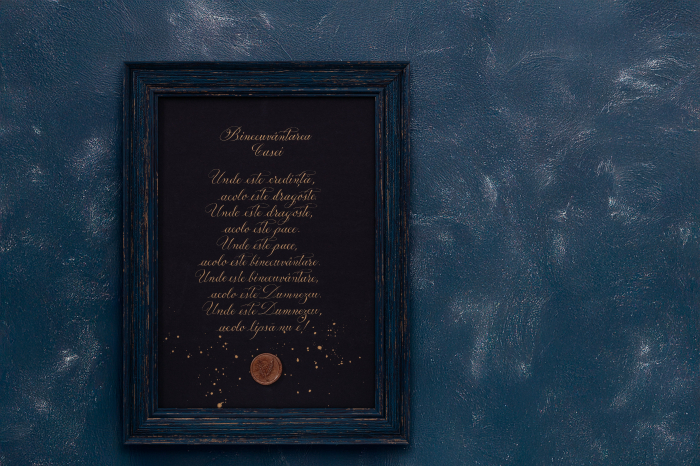 Binecuvântarea
Casei
Unde este credință,
acolo este dragoste.
Unde este dragoste,
acolo este pace.
Unde este pace,
acolo este binecuvântare.
Unde este binecuvântare,
acolo este Dumnezeu.
Unde este Dumnezeu,
acolo lipsă nu e!